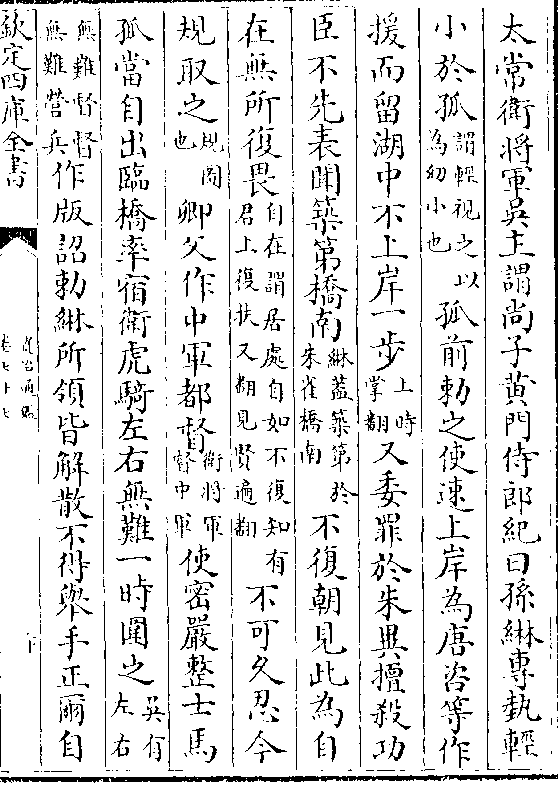 太常衛將軍吳主謂尚子黃門侍郎紀曰孫綝專執輕
小於孤謂輕視之以為幼小也孤前勑之使速上岸為唐咨等作
援而留湖中不上岸一步上時掌翻又委罪於朱異擅殺功
臣不先表聞築第橋南綝蓋築第於朱雀橋南不復朝見此為自
在無所復畏自在謂居處自如不復知有君上復扶又翻見賢遍翻不可久忍今
規取之規圖也卿父作中軍都督衛將軍督中軍使密嚴整士馬
孤當自出臨橋率宿衛虎騎左右無難一時圍之吳有左右
無難督督無難營兵作版詔勑綝所領皆解散不得舉手正爾自
欽定四庫全書
資治通鑑
卷七十七